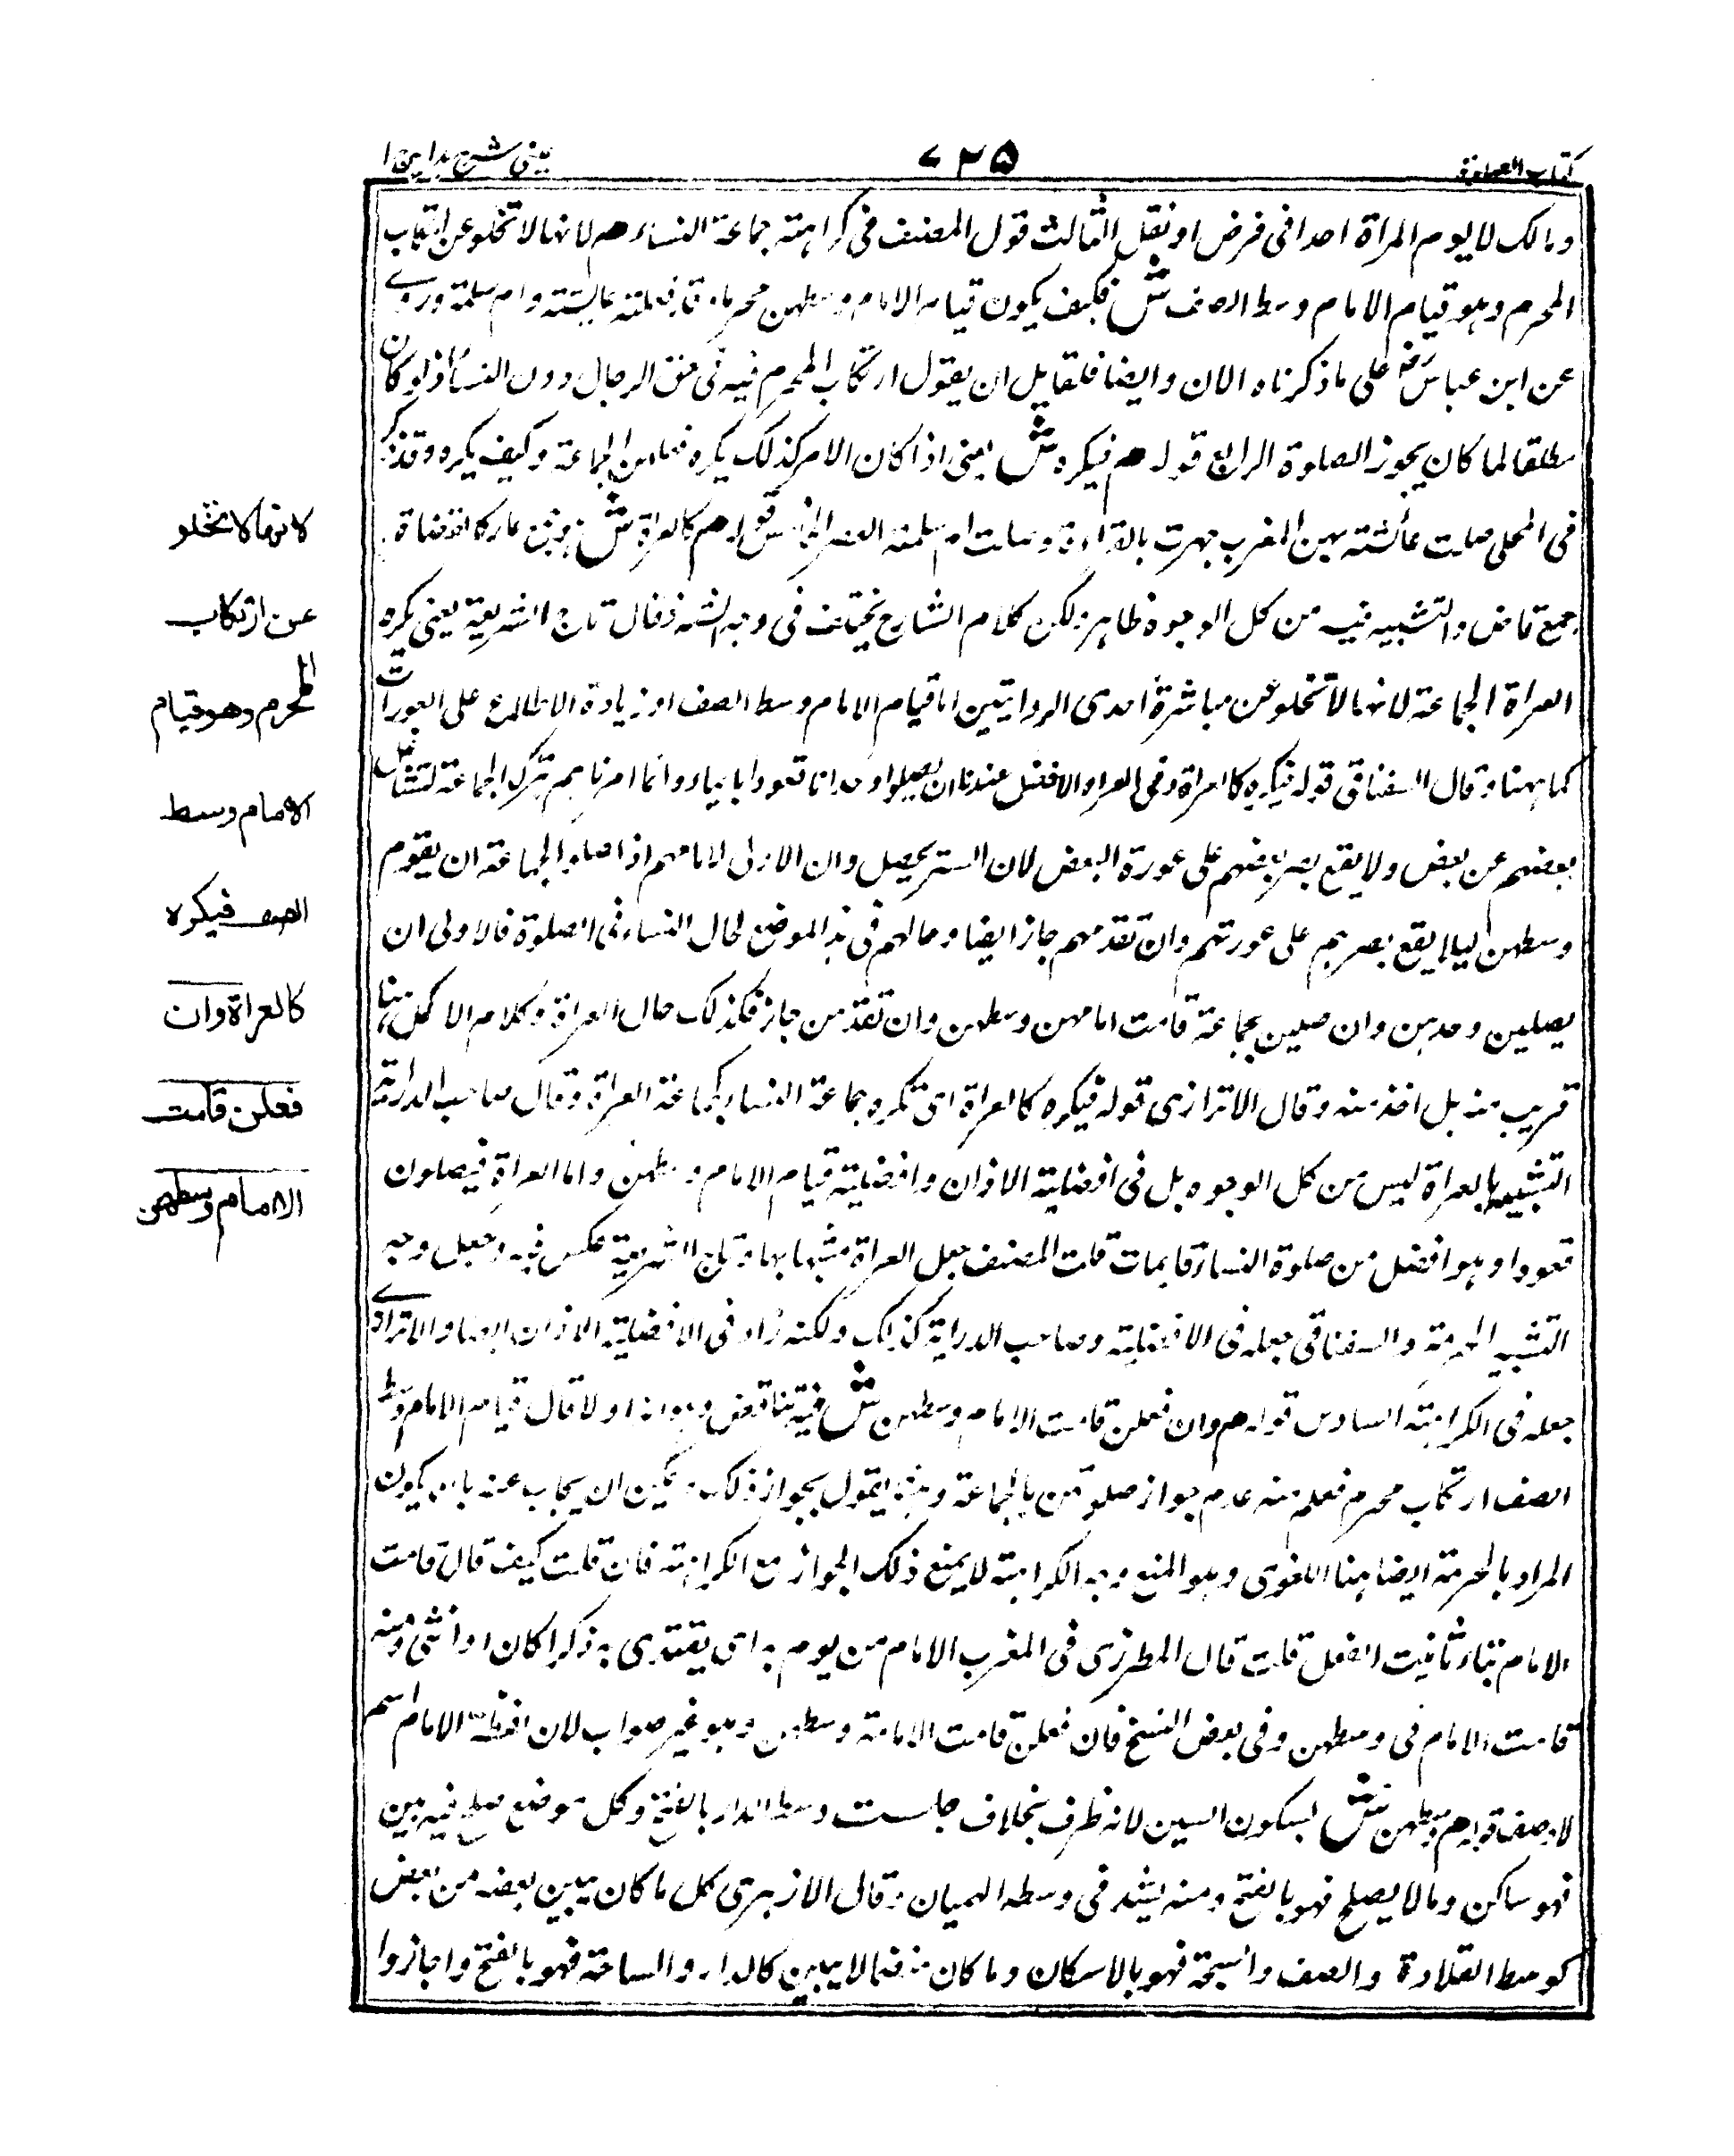 كتاب الصلوة
۷۲۵
عینی شرح ہدایہ ج ۱
ومالك لا يوم المرأة احدا فى فرض او نفل الثالث قول المصنف فى كراهته جماعة النساء هم لانها لا تخلو عن ارتكاب
المحرم وهو قيام الامام وسط الصف ش فكيف يكون قيام الامام وسطهن محرما وقد فعلته عايشته وام سلمة وروے
عن ابن عباس رض على ما ذكرناه الان وايضا فلقايل ان يقول ارتكاب المحرم فيه فى حق الرجال دون النساء اذ لو كان
مطلقا لما كان يجوز الصلوة الرابع قوله هم فيكره ش يعنى اذا كان الامر كذلك يكره فعلهن الجماعة وكيف يكره وقد ذكر
فى المحلى صلت عائشته بهن المغرب جهرت بالقراءة وصلت ام سلمته العصر الخامس قوله هم كالعراة ش جمع عار كالقضاة
جمع قاض والتشبيه فيه من كل الوجوه ظاهر ولكن كلام الشارح يختلف فى وجه الشبه فقال تاج الشريعة يعنى يكره
العراة الجماعة لانها لا تخلو عن مباشرة احدى الروايتين اما قيام الامام وسط الصف او زيادة الاطلاع على العورات
كما هنا وقال السغناقى قوله فيكره كالعراة وفى العراة الافضل عندنا ان يصلوا وحدانا قعودا بايماء وانما امرناهم بترك الجماعة
بعضهم عن بعض ولا يقع بصر بعضهم على عورة البعض لان الستر يحصل وان الاولى لامامهم اذا صلوا بالجماعة ان يقوم
وسطهن ليلا يقع بصرهم على عورتهم وان تقدمهم جاز ايضا وحالهم فى هذا الموضع كحال النساء فى الصلوة فالاولى ان
يصلين وحدهن وان صلين بجماعة قامت امامهن وسطهن وان تقدمن جاز فكذلك حال العراة وكلام الاكمل هنا
قريب منه بل اخذ منه وقال الاترازى قوله فيكره كالعراة اى تكره جماعة النساء كجماعة العراة وقال صاحب الدراية
التشبيه بالعراة ليس من كل الوجوه بل فى افضلية الاذان وافضلية قيام الامام وسطهن واما العراة فيصلون
قعودا وهو افضل من صلوة النساء قايمات قلت المصنف جعل العراة مشبها بها وتاج الشريعة عكس فيه وجعل وجه
التشبيه الحرمة والسغناقى جعله فى الافضلية وصاحب الدراية كذلك ولكنه زاد فى الافضلية الاذان ايضا والاترازے
جعله فى الكراهة السادس قوله هم وان فعلن قامت الامام وسطهن ش فيه تناقض وهو انه اولا قال قيام الامام وسط
الصف ارتكاب محرم فعلم منه عدم جواز صلوتهن بالجماعة وهنا يقول بجواز ذلك ويمكن ان يجاب عنه بان يكون
المراد بالحرمة ايضا هنا اللغوى وهو المنع وجه الكراهة لا يمنع ذلك الجواز مع الكراهة فان قلت كيف قال قامت
الامام بتاء تانيث الفعل قلت قال المطرزى فى المغرب الامام من يوم به اى يقتدى به ذكرا كان او انثى ومنه
قامت الامام فى وسطهن وفى بعض النسخ فان فعلن قامت الامامة وسطهن وهو غير صواب لان لفظة الامام اسم
لا وصف قوله هم وسطهن ش بسكون السين لانه ظرف بخلاف جلست وسط الدار بالفتح وكل موضع صلح فيه بين
فهو ساكن وما لا يصلح فهو بالفتح ومنه يشد فى وسطه الهميان وقال الازهرى كل ما كان يبين بعضه من بعض
كوسط القلادة والصف والسبحة فهو بالاسكان وما كان منضما لا يبين كالدار والساحة فهو بالفتح واجازوا
لانها لا تخلو
عن ارتكاب
المحرم وهو قيام
الامام وسط
الصف فيكره
كالعراة وان
فعلن قامت
الامام وسطهن